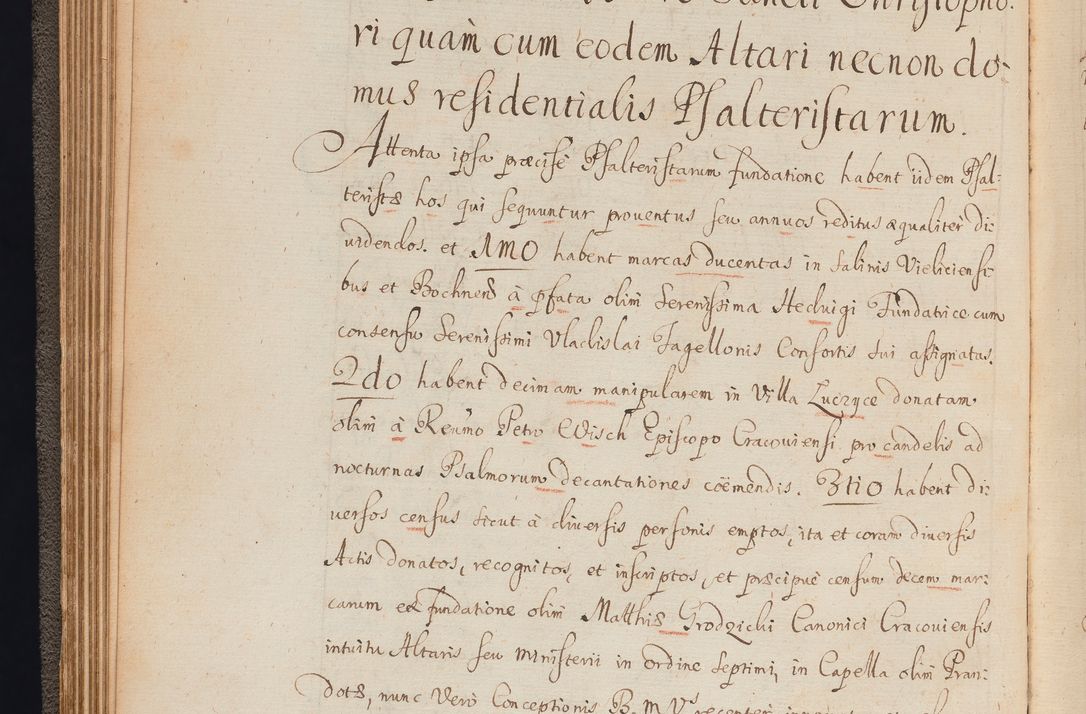 Sancti Christopho-
ri quàm cum eodem Altari necnon do-
mus residentialis Psalteristarum.
Attenta ipsa præcisè Psalteristarum fundatione habent iidem Psal-
teristæ hos qui sequuntur prouentus seu annuos reditus æqualitèr di-
uidendos. et 1mo habent marcas ducentas in Salinis Vieliciensi-
bus et Bochnens à pfata olim Serenissima Heduigi Fundatrice cum
consensu Serenissimi Vladislai Jagellonis Consortis sui assignatas.
2do habent decimam manipularem in Villa Luczyce donatam
olim à Reumo Petro Wisch Episcopo Cracouiensi pro candelis ad
nocturnas Psalmorum decantationes coëmendis. 3tio habent di-
uersos census sicut à diuersis personis emptos, ita et coram diuersis
Actis donatos, recognitos, et inscriptos, et præcipuè censum decem mar-
carum ex fundatione olim Matthiæ Grodzicki Canonici Cracouiensis
intuitu Altaris seu ministerii in ordine septimi, in Capella olim Pran-
dotæ, nunc verò Conceptionis B. M. Vs recenter